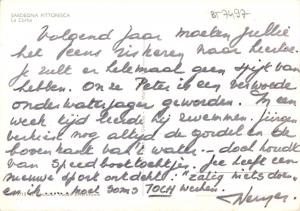 SARDEGNA PITTORESCA
La Costa
BT 7497
Volgend jaar moeten jullie
het eens riskeren naar hier te
Je zult er helemaal geen spijt van
hebben. Onze Peter is een verwoede
onderwaterjager geworden. In een
week tijd leerde hij zwemmen. Jurgen
verkiest nog altijd de gordel en de
bovenkant van 't water – doet houdt
van Speedboottochtjes. Jos heeft een
nieuwe sport ontdekt: "zalig niets doen"
en ik ..... moet soms TOCH werken.